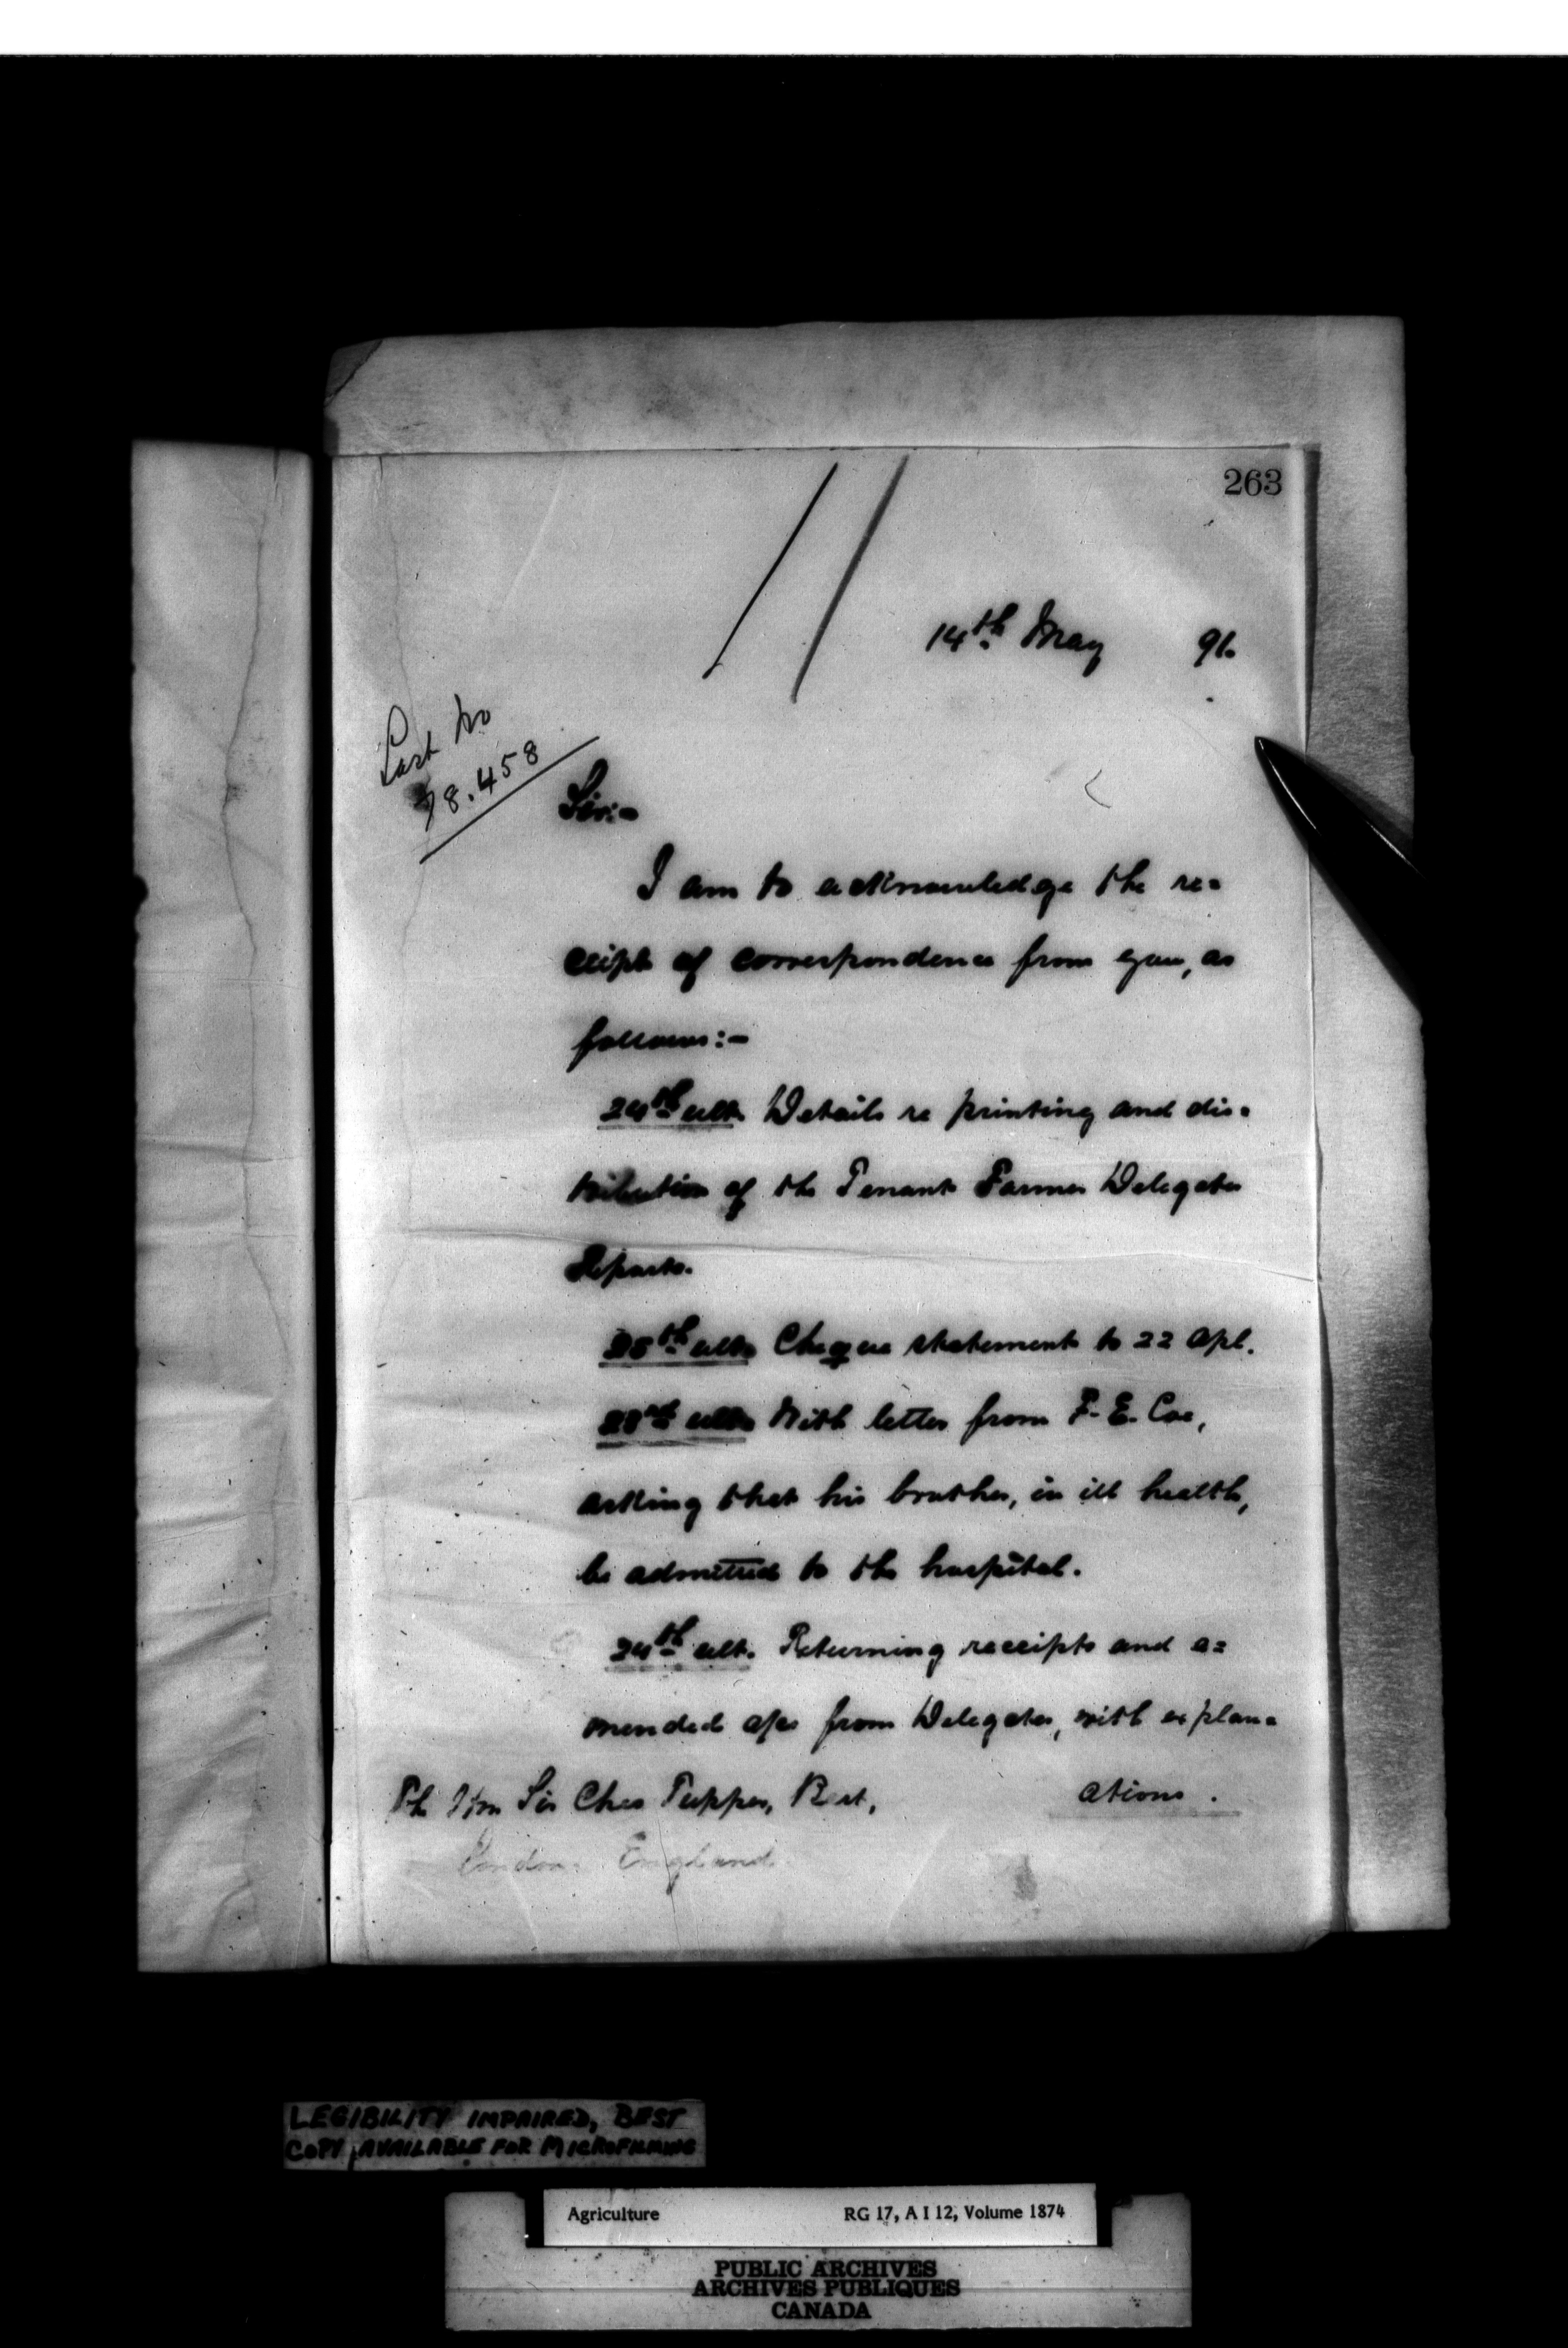 263
14th May 91.
Last No
78.458
Sir:-
I am to acknowledge the re=
ceipt of correspondence from you, as
follows:-
24th ult. Details re printing and dis=
tribution of the Tenant Farmer Delegates
Reports.
25th ult. Cheque statement to 22 Apl.
ult. With letter from F. E. Coe,
asking that his brother, in ill health,
be admitted to the hospital.
24th ult. Returning receipts and a=
mended a/cs from Delegates, with explan=
ations.
The Hon Sir Chas Tupper, Bart,
London. England.
LEGIBILITY IMPAIRED, BEST
COPY AVAILABLE FOR MICROFILMING
Agriculture RG 17, A I 12, Volume 1874
PUBLIC ARCHIVES
ARCHIVES PUBLIQUES
CANADA